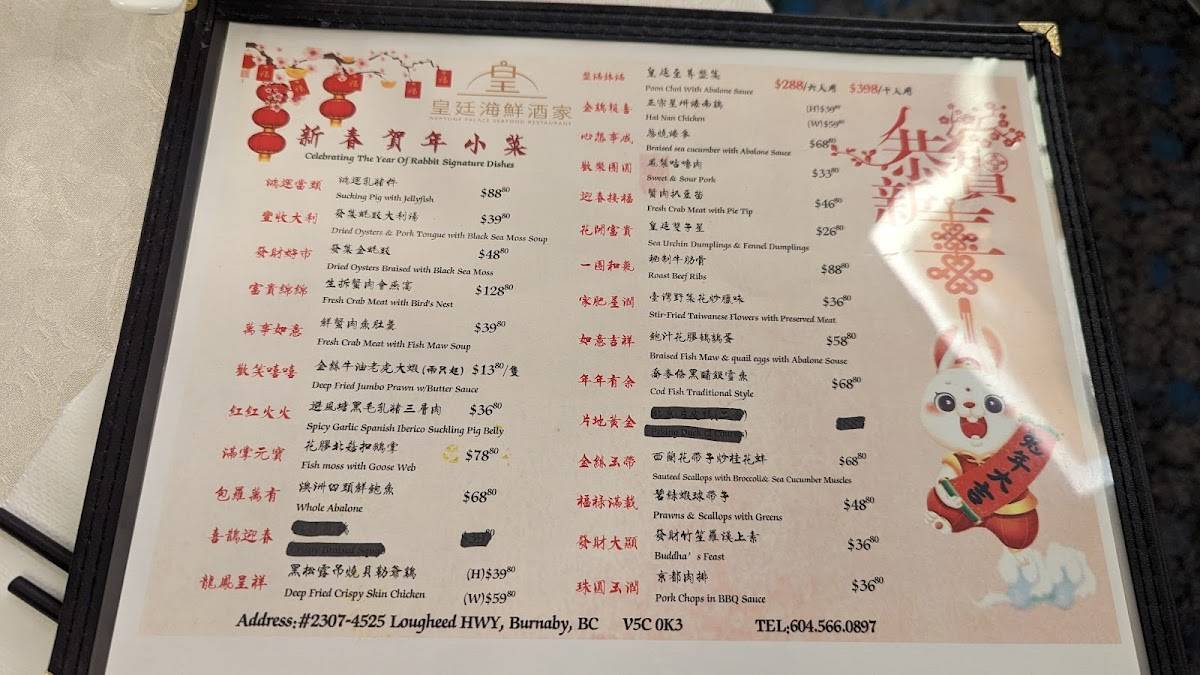 皇
皇廷海鮮酒家
新春賀年小菜
Celebrating The Year Of Rabbit Signature Dishes
鴻運當頭 鴻運乳豬件 $88⁸⁰
Sucking Pig with Jellyfish
豐收大利 發菜蠔豉大利湯 $39⁸⁰
Dried Oysters & Pork Tongue with Black Sea Moss Soup
發財好市 發菜金蠔豉 $48⁸⁰
Dried Oysters Braised with Black Sea Moss
富貴綿綿 生拆蟹肉會燕窩 $128⁸⁰
Fresh Crab Meat with Bird's Nest
萬事如意 鮮蟹肉魚肚羹 $39⁸⁰
Fresh Crab Meat with Fish Maw Soup
歡笑嘻嘻 金絲牛油老虎大蝦(兩只起) $13⁸⁰/隻
Deep Fried Jumbo Prawn w/Butter Sauce
紅紅火火 避風塘黑毛乳豬三層肉 $36⁸⁰
Spicy Garlic Spanish Iberico Suckling Pig Belly
滿掌元寶 花膠北菇扣鵝掌 $78⁸⁰
Fish moss with Goose Web
包羅萬有 澳洲四頭鮮鮑魚 $68⁸⁰
Whole Abalone
喜鵲迎春
龍鳳呈祥 黑松露吊燒貝勒爺鷄 (H)$39⁸⁰
Deep Fried Crispy Skin Chicken (W)$59⁸⁰
皇廷至尊盤菜 $288/六人用 $398/十人用
Poon Choi With Abalone Sauce
金鷄報喜 正宗星州海南鷄 (H)$39⁸⁰
Hai Nan Chicken (W)$59⁸⁰
心想事成 蔥燒海參 $68⁸⁰
Braised sea cucumber with Abalone Sauce
歡樂團圓 菠蘿咕嚕肉 $33⁸⁰
Sweet & Sour Pork
迎春接福 蟹肉扒豆苗 $46⁸⁰
Fresh Crab Meat with Pie Tip
花開富貴 皇廷雙子星 $26⁸⁰
Sea Urchin Dumplings & Fennel Dumplings
一團和氣 秘制牛肋骨 $88⁸⁰
Roast Beef Ribs
家肥屋潤 臺灣野菜花炒臘味 $36⁸⁰
Stir-Fried Taiwanese Flowers with Preserved Meat
如意吉祥 鮑汁花膠鵪鶉蛋 $58⁸⁰
Braised Fish Maw & quail eggs with Abalone Souse
年年有余 $68⁸⁰
Cod Fish Traditional Style
片地黃金
金絲玉帶 西蘭花帶子炒桂花蚌 $68⁸⁰
Sauteed Scallops with Broccoli& Sea Cucumber Muscles
福祿滿載 碧綠蝦球帶子 $48⁸⁰
Prawns & Scallops with Greens
發財大顯 發財竹笙羅漢上素 $36⁸⁰
Buddha's Feast
珠圓玉潤 京都肉排 $36⁸⁰
Pork Chops in BBQ Sauce
恭賀新喜
兔年大吉
Address:#2307-4525 Lougheed HWY, Burnaby, BC V5C 0K3 TEL:604.566.0897